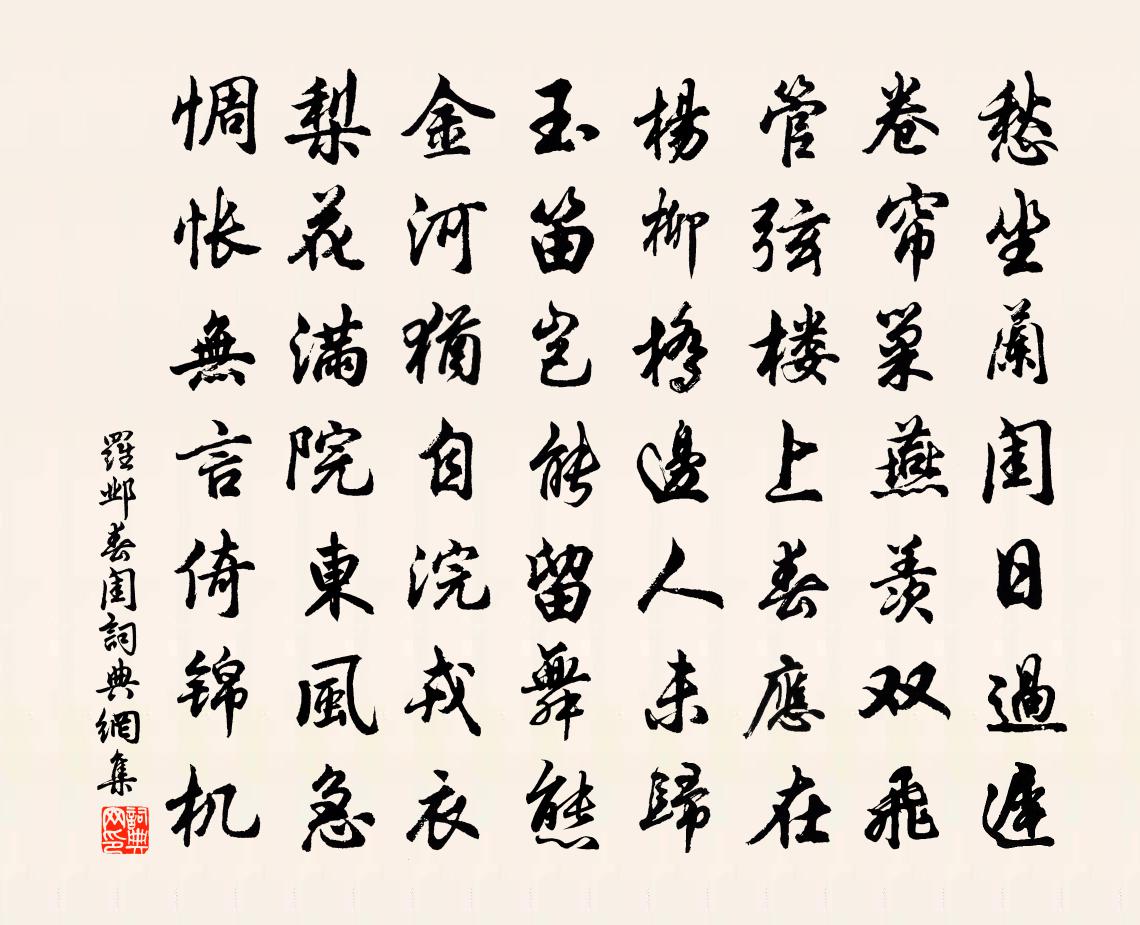 愁坐蘭闺日過遲
卷帘巢燕羨双飛
管弦楼上春應在
楊柳橋邊人未歸
玉笛岂能留舞熊
金河猶自浣戎衣
梨花满院東風急
惆怅無言倚锦机
羅邺春闺詞典網集
詞典网印